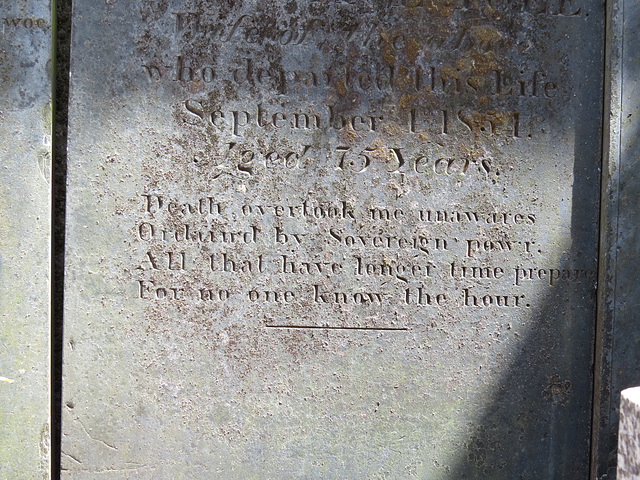 woe.
Wife of the above
who departed this Life
September 1 1854.
Aged 75 Years.
Death overtook me unawares
Ordaind by Sovereign pow'r.
All that have longer time prepare
For no one know the hour.